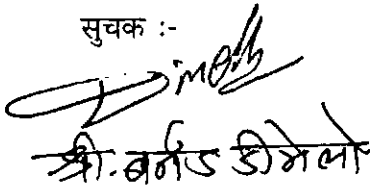 सुचक :-
श्री. बर्नड डीमेलो